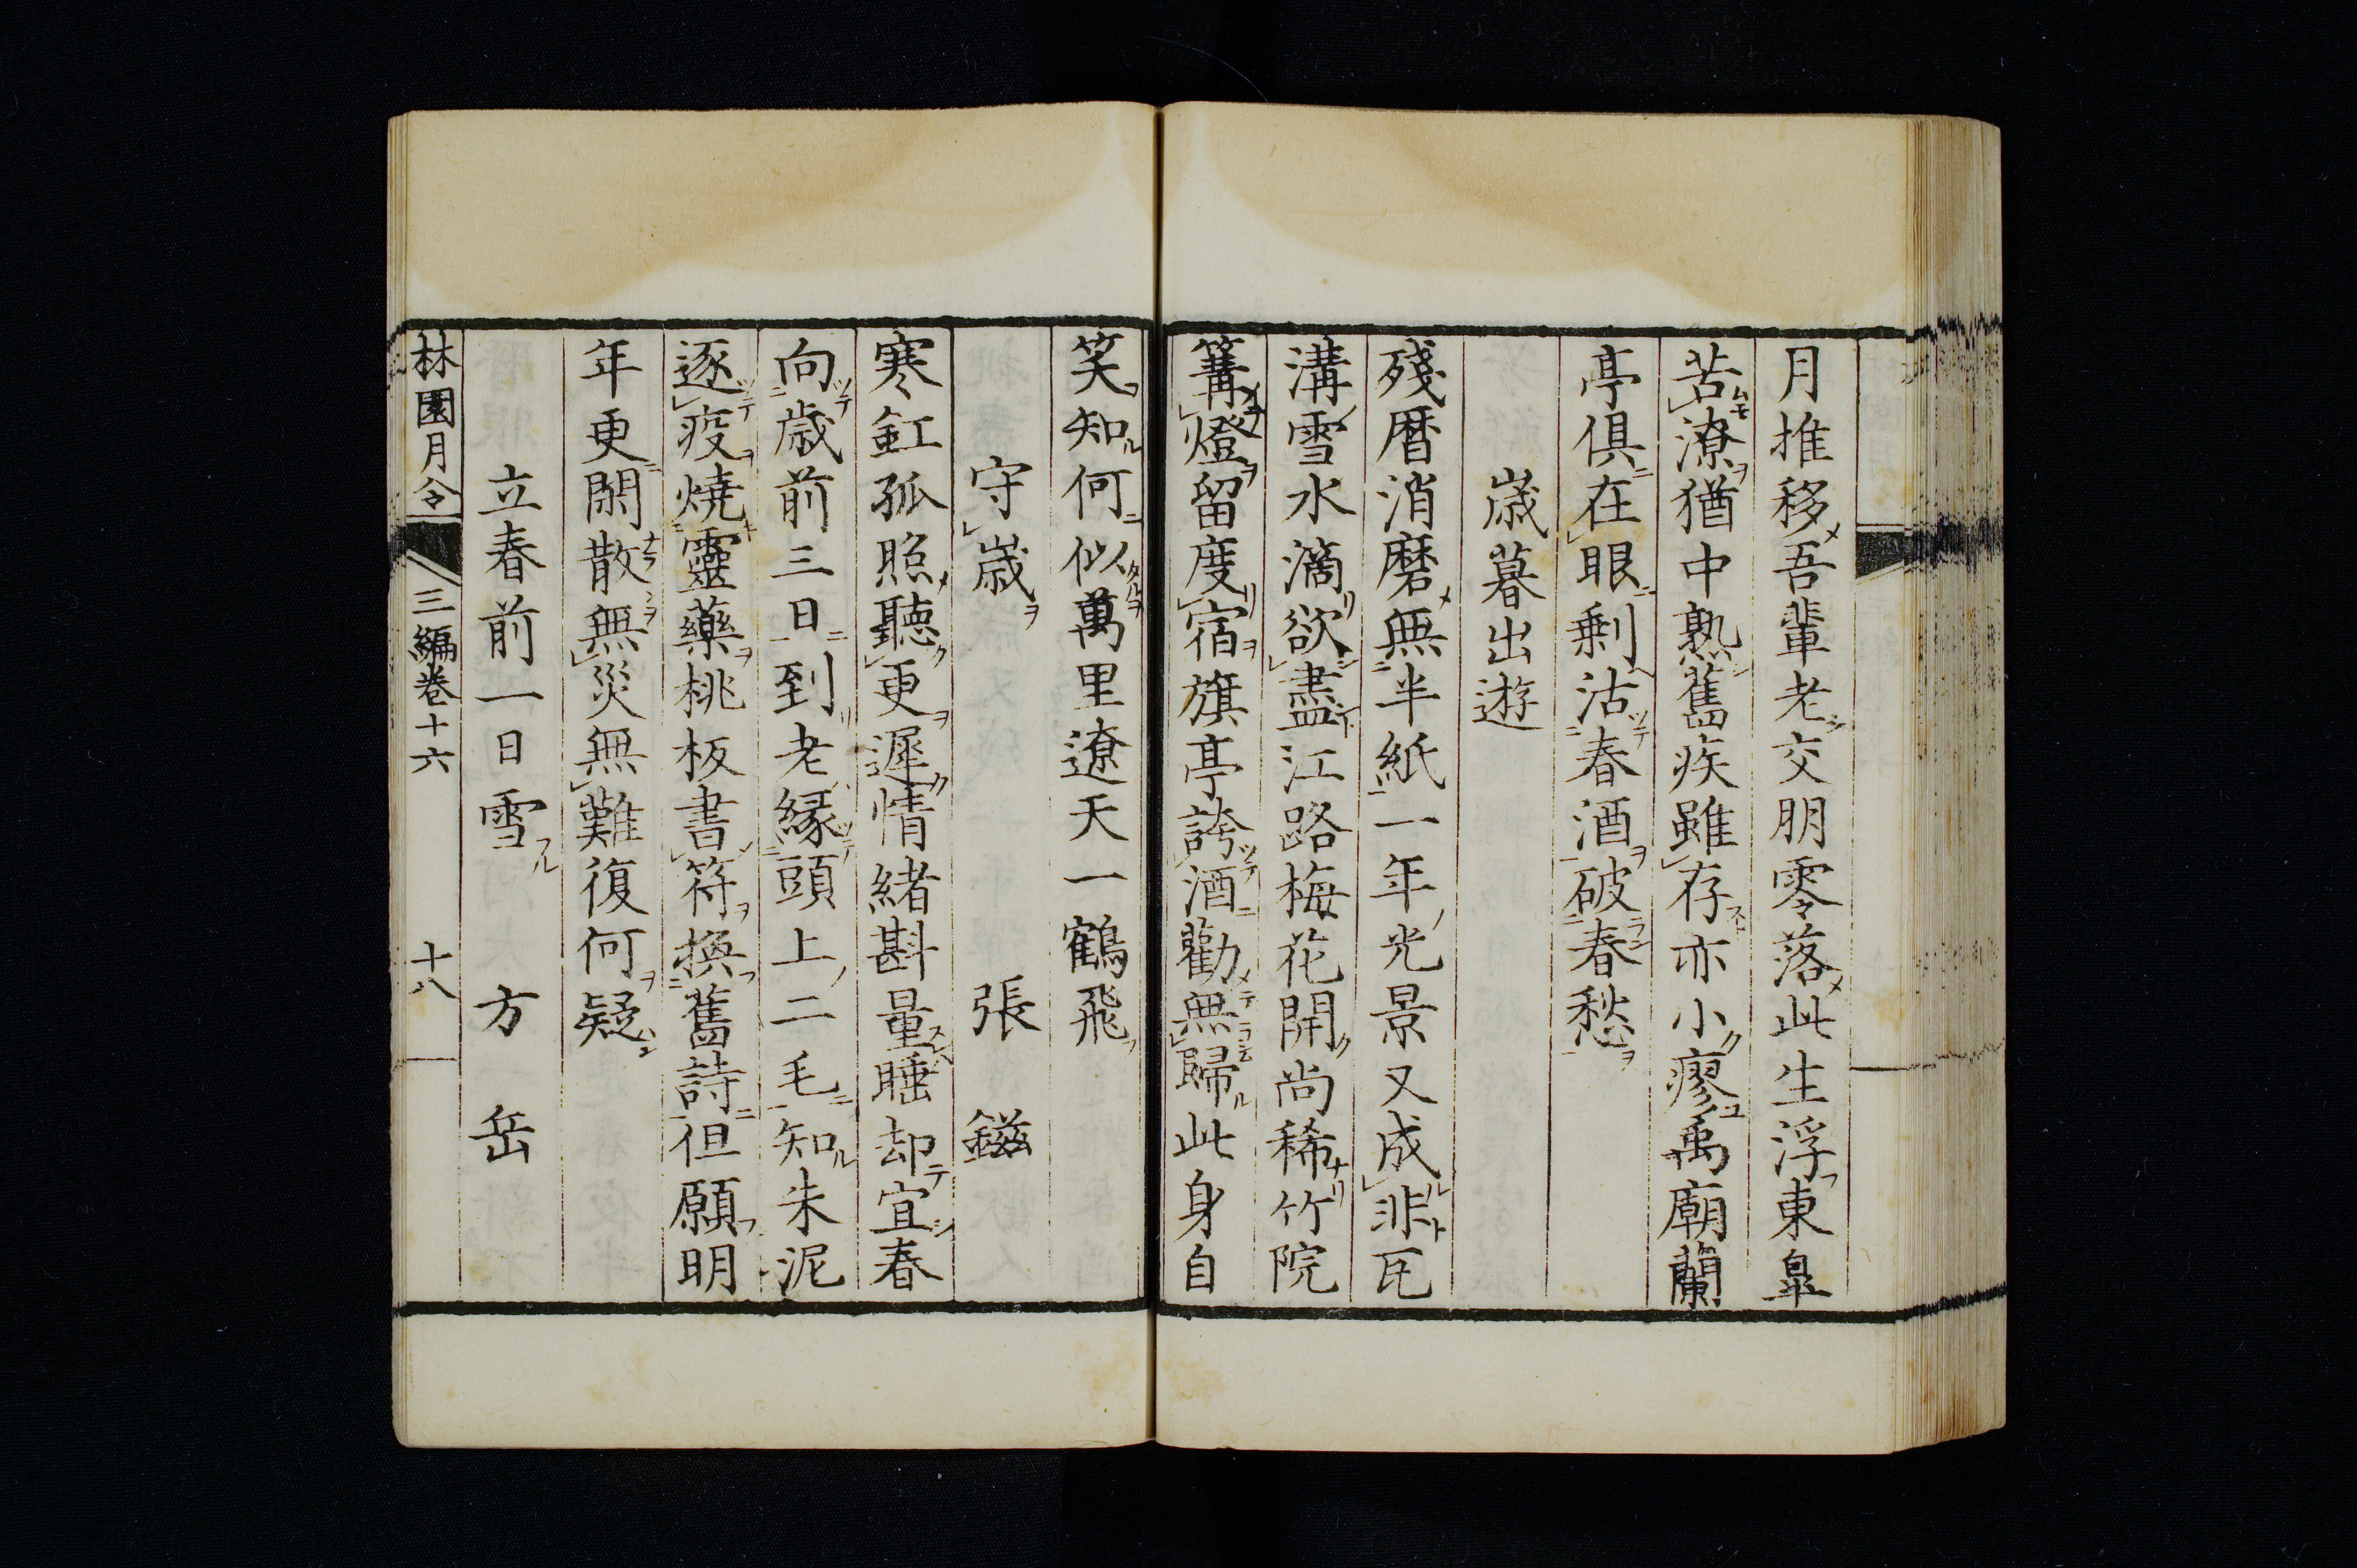 月推移吾輩老交朋零落此生浮東皐
苦潦猶中熟舊疾雖存亦小瘳禹廟蘭
亭俱在眼剰沽春酒破春愁
歳暮出遊
殘暦消磨無半紙一年光景又成非瓦
溝雪水滴欲盡江路梅花開尚稀竹院
篝燈留度宿旗亭誇酒勸無歸此身自
笑知何似萬里遼天一鶴飛
守歳　張鎡
寒釭孤照聽更遲情緒斟量睡却宜春
向歳前三日到老縁頭上二毛知朱泥
逐疫燒靈藥桃板書符換舊詩但願明
年更閑散無災無難復何疑
立春前一日雪　方岳
林園月令　三編巻十六　十八